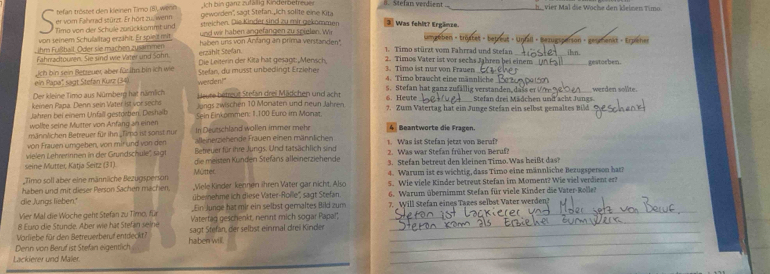 Stefan tröstet den kleinen Timo (8), wenn
er vom Fahrrad stürzt. Er hört zu, wenn
Timo von der Schule zurückkommt und
von seinem Schulalltag erzählt. Er spielt mit
ihm Fußball. Oder sie machen zusammen
Fahrradtouren. Sie sind wie Vater und Sohn.
„Ich bin sein Betreuer, aber für ihn bin ich wie
ein Papa“, sagt Stefan Kurz (34).
Der kleine Timo aus Nürnberg hat nämlich
keinen Papa. Denn sein Vater ist vor sechs
Jahren bei einem Unfall gestorben. Deshalb
wollte seine Mutter von Anfang an einen
männlichen Betreuer für ihn. „Timo ist sonst nur
von Frauen umgeben, von mir und von den
vielen Lehrerinnen in der Grundschule“, sagt
seine Mutter, Katja Seitz (31).
„Timo soll aber eine männliche Bezugsperson
haben und mit dieser Person Sachen machen,
die Jungs lieben.“
Vier Mal die Woche geht Stefan zu Timo, für
8 Euro die Stunde. Aber wie hat Stefan seine
Vorliebe für den Betreuerberuf entdeckt?
Denn von Beruf ist Stefan eigentlich
Lackierer und Maler.
„Ich bin ganz zufällig Kinderbetreuer
geworden“, sagt Stefan. „Ich sollte eine Kita
streichen. Die Kinder sind zu mir gekommen
und wir haben angefangen zu spielen. Wir
haben uns von Anfang an prima verstanden“,
erzählt Stefan.
Die Leiterin der Kita hat gesagt: „Mensch,
Stefan, du musst unbedingt Erzieher
werden!“
Heute betreut Stefan drei Mädchen und acht
Jungs zwischen 10 Monaten und neun Jahren.
Sein Einkommen: 1.100 Euro im Monat.
In Deutschland wollen immer mehr
alleinerziehende Frauen einen männlichen
Betreuer für ihre Jungs. Und tatsächlich sind
die meisten Kunden Stefans alleinerziehende
Mütter.
„Viele Kinder kennen ihren Vater gar nicht. Also
übernehme ich diese Vater-Rolle“, sagt Stefan.
„Ein Junge hat mir ein selbst gemaltes Bild zum
Vatertag geschenkt, nennt mich sogar Papa!“,
sagt Stefan, der selbst einmal drei Kinder
haben will.
Stefan verdient
viel Mal die Woche den kleinen Timo.
3 Was fehlt? Ergänze.
umgeben • tröstet • betreut • Unfall • Bezugsperson • geschenkt • Erzieher
1. Timo stürzt vom Fahrrad und Stefan tröstet ihn.
2. Timos Vater ist vor sechs Jahren bei einem unfall gestorben.
3. Timo ist nur von Frauen Erzieher
4. Timo braucht eine männliche Bezugsperson
5. Stefan hat ganz zufällig verstanden, dass er umgeben werden sollte.
6. Heute betreut Stefan drei Mädchen und acht Jungs.
7. Zum Vatertag hat ein Junge Stefan ein selbst gemaltes Bild geschenkt
4 Beantworte die Fragen.
1. Was ist Stefan jetzt von Beruf?
2. Was war Stefan früher von Beruf?
3. Stefan betreut den kleinen Timo. Was heißt das?
4. Warum ist es wichtig, dass Timo eine männliche Bezugsperson hat?
5. Wie viele Kinder betreut Stefan im Moment? Wie viel verdient er?
6. Warum übernimmt Stefan für viele Kinder die Vater-Rolle?
7. Will Stefan eines Tages selbst Vater werden?
Stefan ist Lackierer und Maler jetz von Beruf.
Stefan kann als Erzieher